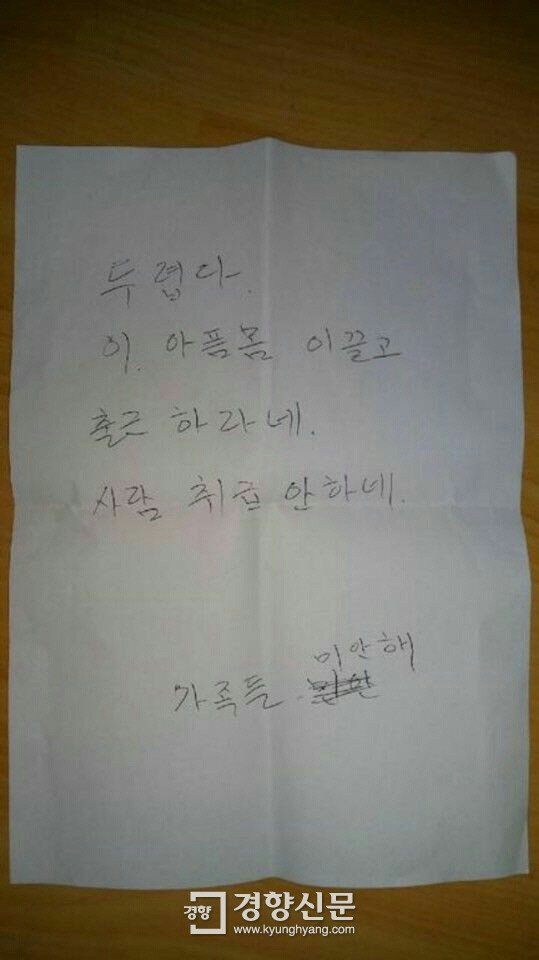 두렵다.
이. 아픔몸 이끌고
출근 하라네.
사람 취급 안하네.
미안해
가족들.
경향 경향신문
www.kyunghyang.com